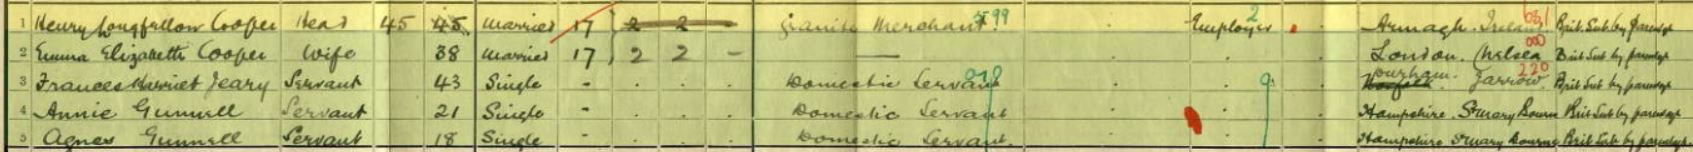 1 Henry Longfellow Cooper Head 45 45 Married 17 2 2 Granite Merchant 599 Employer 2 Armagh. Ireland 631 Brit Sub by parentge
2 Emma Elizabeth Cooper Wife 38 Married 17 2 2 – — London. Chelsea 000 Brit Sub by parentge
3 Frances Harriet Jeary Servant 43 Single - Domestic Servant 010 9 Norfolk Durham. Jarrow 220 Brit Sub by parentge
4 Annie Gunnell Servant 21 Single - Domestic Servant Hampshire. St Mary Bourn Brit Sub by parentge
5 Agnes Gunnell Servant 18 Single - Domestic Servant. Hampshire St Mary Bourne Brit Sub by parentge.